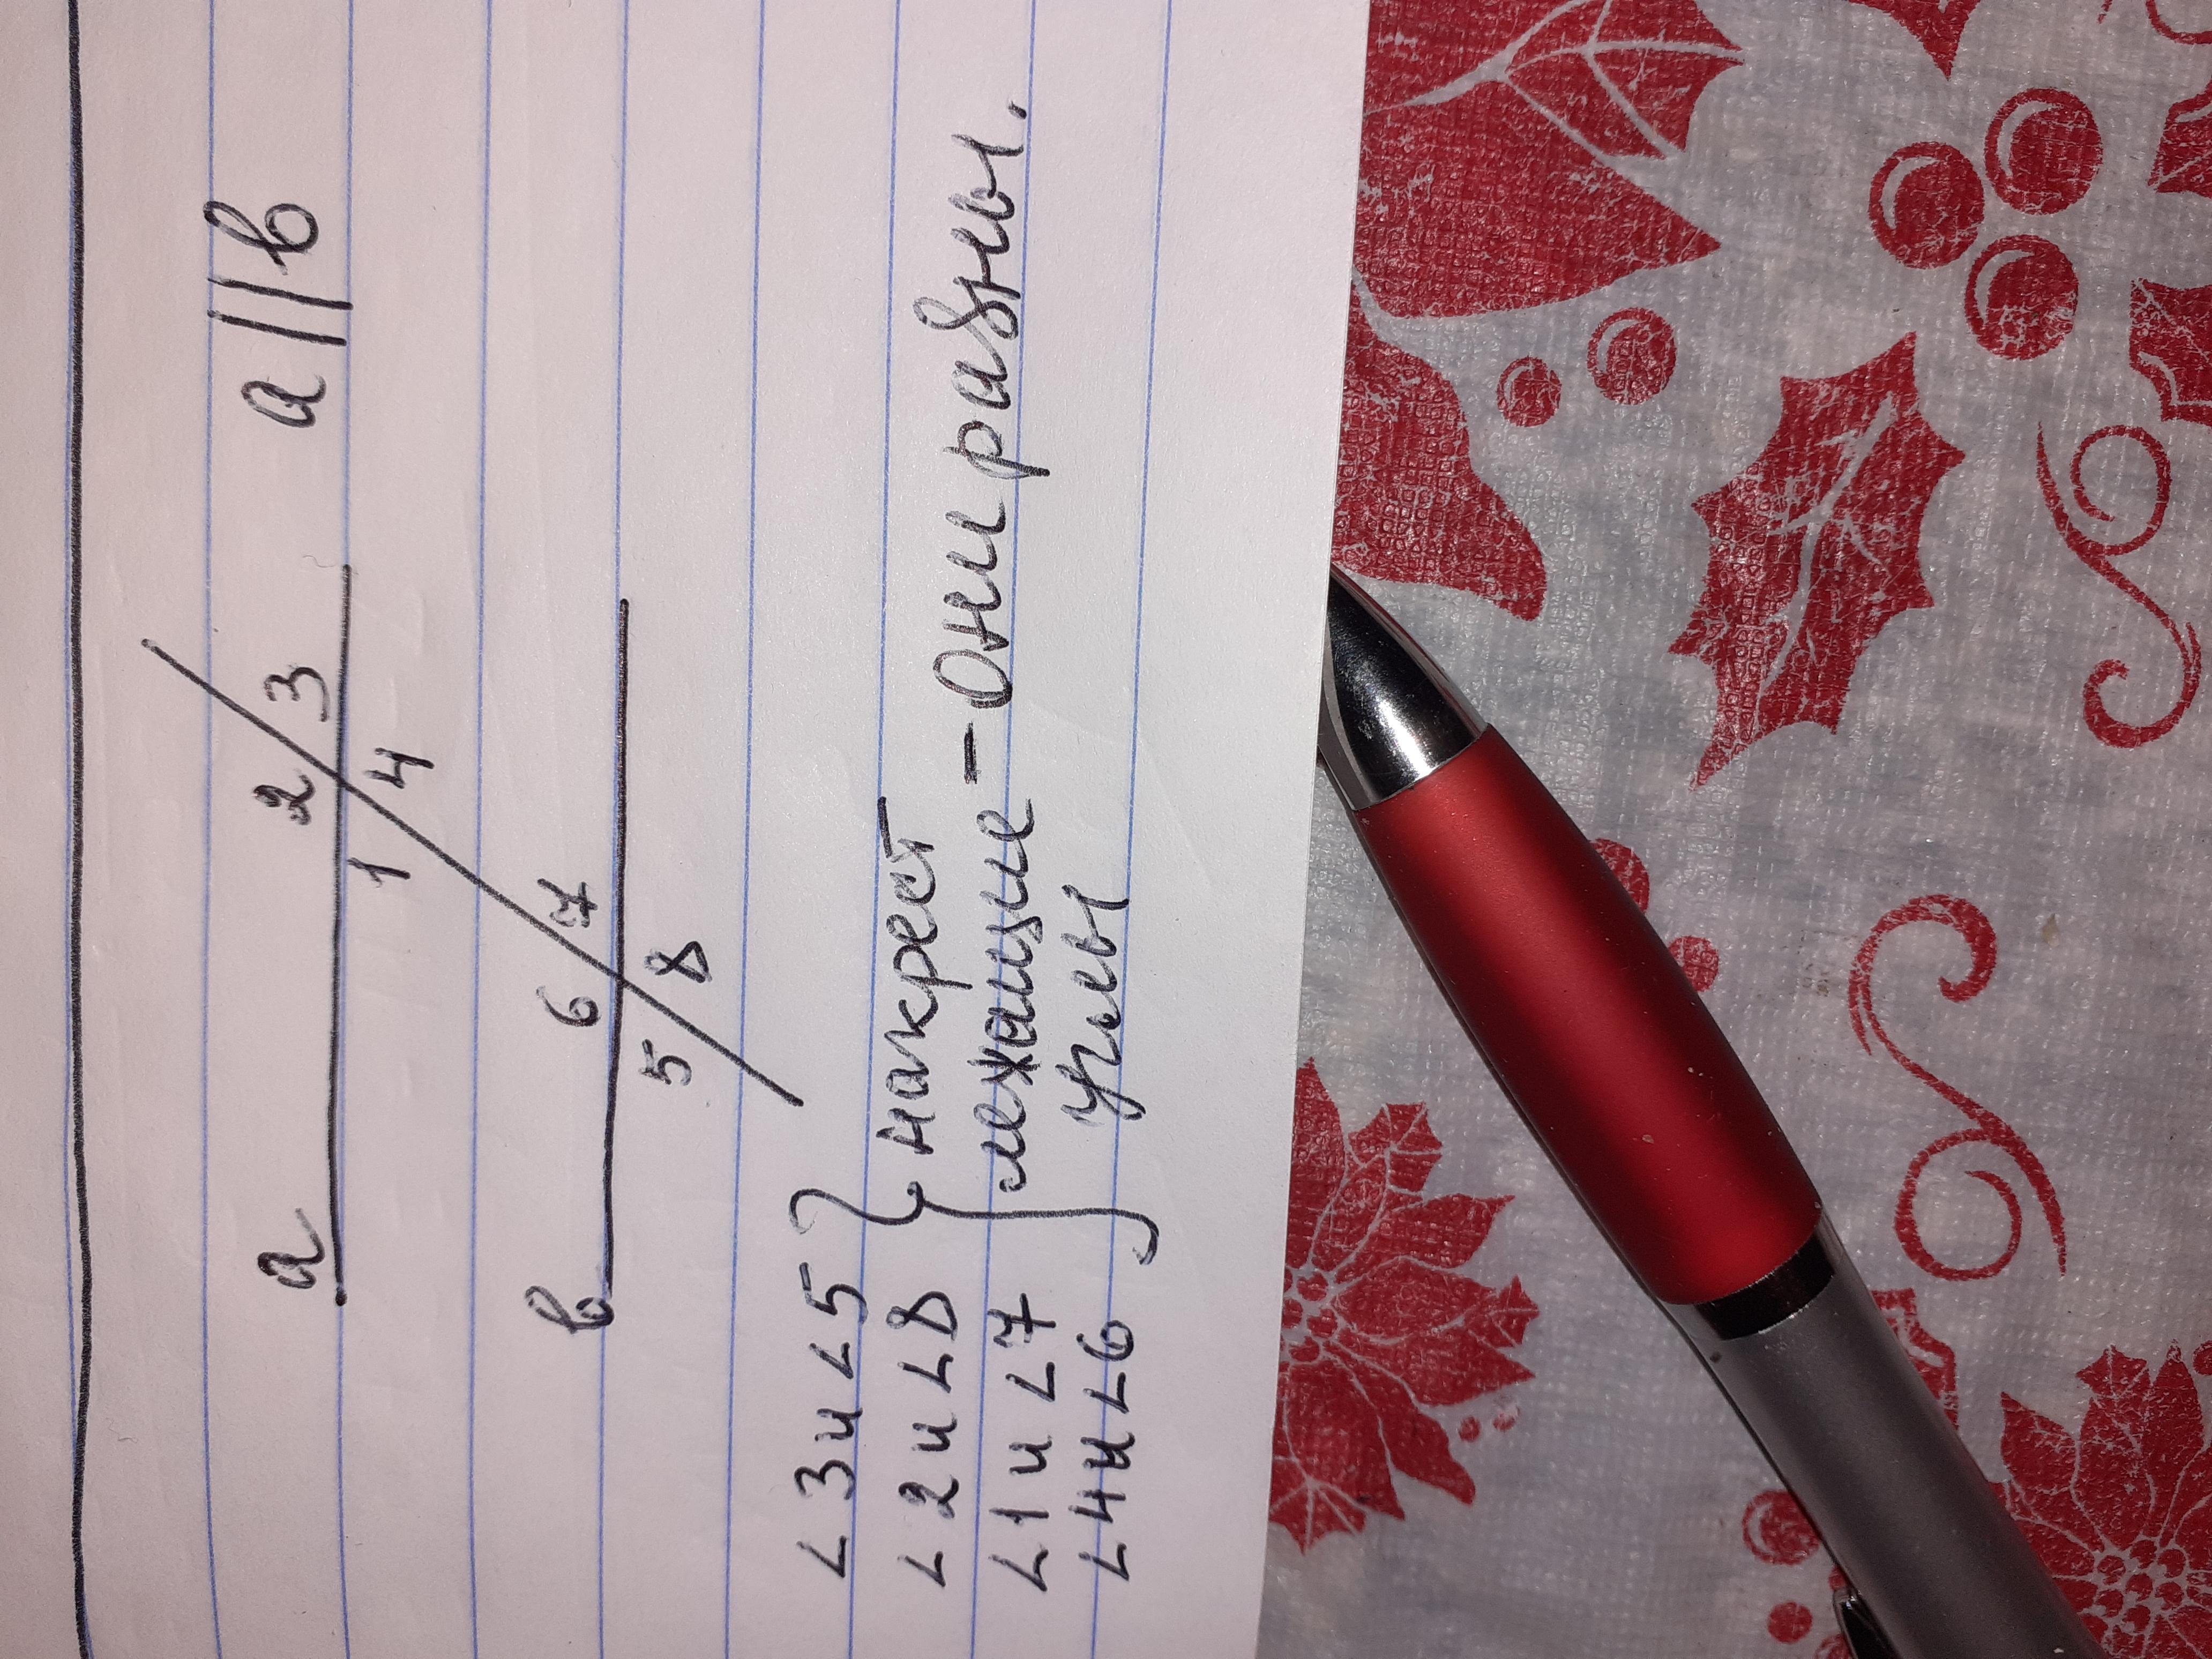 a a || b
2 3
1 4
b 6 7
5 8
∠3 и ∠5
∠2 и ∠8 накрест
∠1 и ∠7 лежащие – Они равны.
∠4 и ∠6 углы